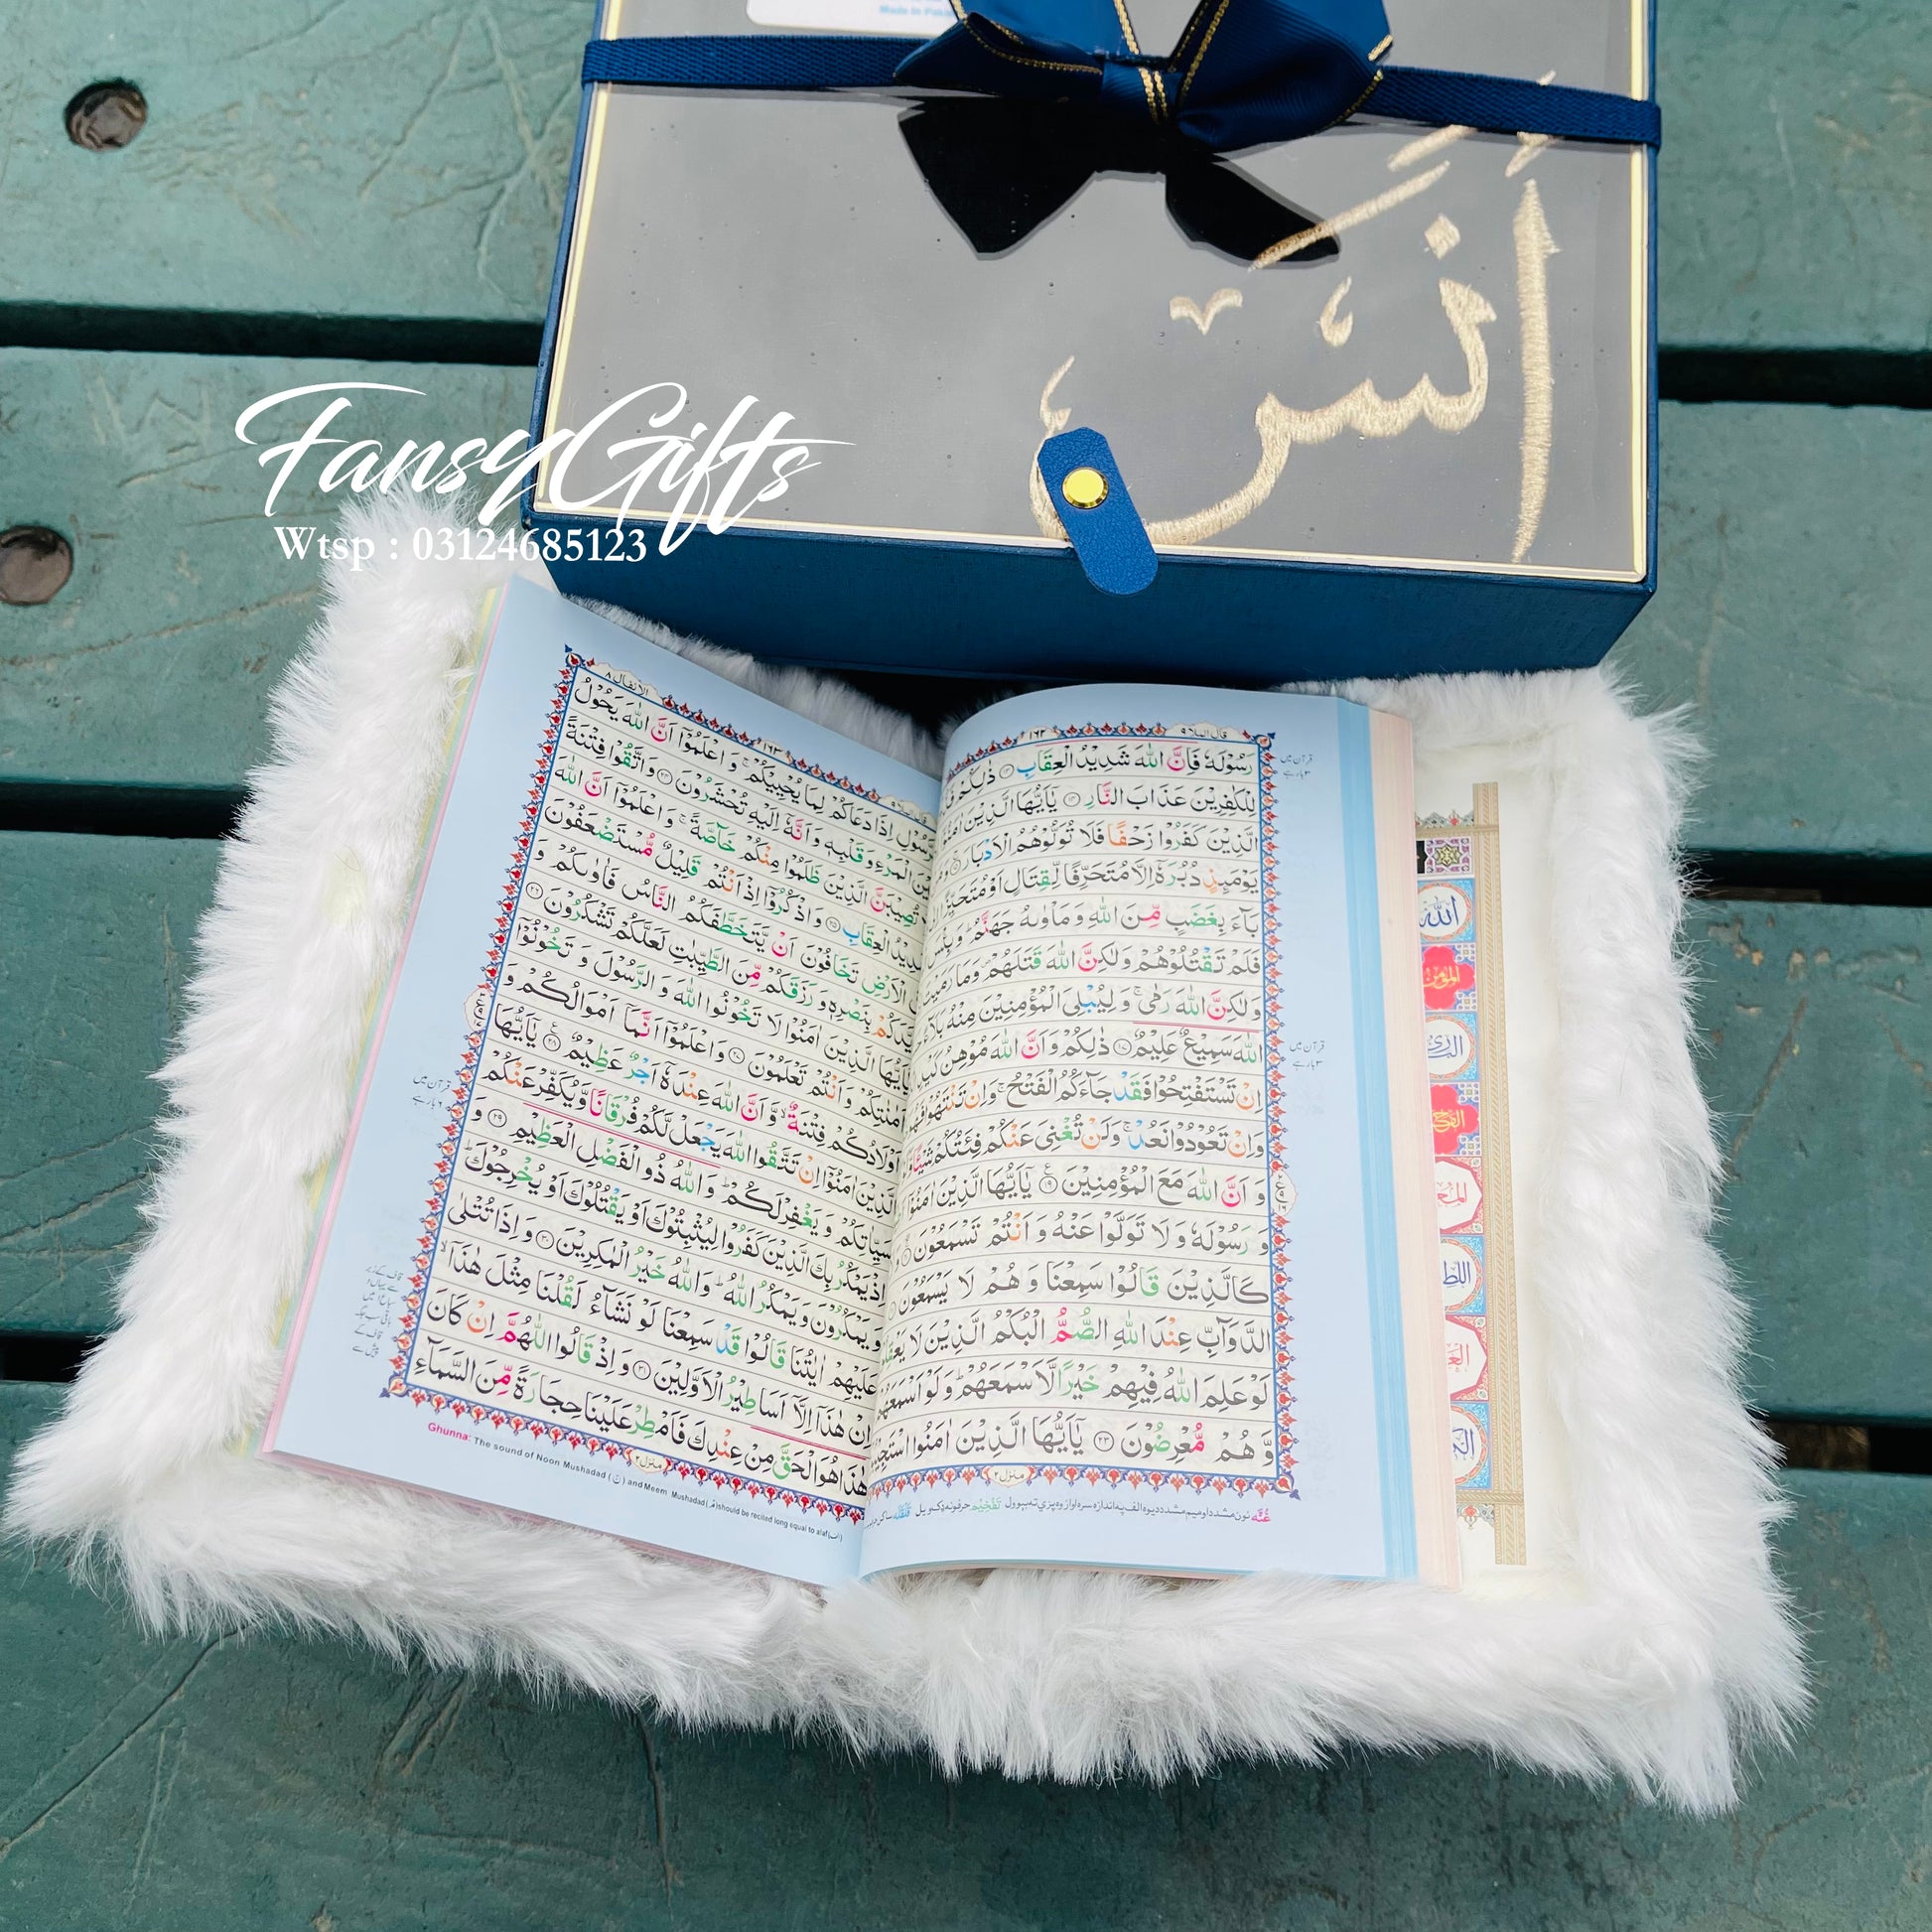 Made in Pakis
اَنَسْ
FansyGifts
Wtsp : 03124685123
قال الملا ٩
١٦٢
رَسُوْلَهٗ فَاِنَّ اللّٰهَ شَدِيْدُ الْعِقَابِ ۝ ذٰلِكُمْ
لِلْكٰفِرِيْنَ عَذَابَ النَّارِ ۝ يٰۤاَيُّهَا الَّذِيْنَ اٰمَنُوْۤا
الَّذِيْنَ كَفَرُوْا زَحْفًا فَلَا تُوَلُّوْهُمُ الْاَدْبَارَ
يَوْمَىِٕذٍ دُبُرَهٗۤ اِلَّا مُتَحَرِّفًا لِّقِتَالٍ اَوْ مُتَحَيِّزًا
بَآءَ بِغَضَبٍ مِّنَ اللّٰهِ وَ مَاْوٰىهُ جَهَنَّمُ ؕ وَ بِئْسَ
فَلَمْ تَقْتُلُوْهُمْ وَ لٰكِنَّ اللّٰهَ قَتَلَهُمْ ۪ وَ مَا رَمَيْتَ
وَ لٰكِنَّ اللّٰهَ رَمٰى ۚ وَ لِيُبْلِيَ الْمُؤْمِنِيْنَ مِنْهُ بَلَآءً
اللّٰهَ سَمِيْعٌ عَلِيْمٌ ۝١٧ ذٰلِكُمْ وَ اَنَّ اللّٰهَ مُوْهِنُ كَيْدِ
اِنْ تَسْتَفْتِحُوْا فَقَدْ جَآءَكُمُ الْفَتْحُ ۚ وَ اِنْ تَنْتَهُوْا فَهُوَ
وَ اِنْ تَعُوْدُوْا نَعُدْ ۚ وَ لَنْ تُغْنِيَ عَنْكُمْ فِئَتُكُمْ شَيْـًٔا
وَ اَنَّ اللّٰهَ مَعَ الْمُؤْمِنِيْنَ ۝١٩ يٰۤاَيُّهَا الَّذِيْنَ اٰمَنُوْۤا
وَ رَسُوْلَهٗ وَ لَا تَوَلَّوْا عَنْهُ وَ اَنْتُمْ تَسْمَعُوْنَ
كَالَّذِيْنَ قَالُوْا سَمِعْنَا وَ هُمْ لَا يَسْمَعُوْنَ
الدَّوَآبِّ عِنْدَ اللّٰهِ الصُّمُّ الْبُكْمُ الَّذِيْنَ لَا يَعْقِلُوْنَ
لَوْ عَلِمَ اللّٰهُ فِيْهِمْ خَيْرًا لَّاَسْمَعَهُمْ ؕ وَ لَوْ اَسْمَعَهُمْ
وَّ هُمْ مُّعْرِضُوْنَ ۝٢٣ يٰۤاَيُّهَا الَّذِيْنَ اٰمَنُوا اسْتَجِيْبُوْا
منزل ٢
الانفال ٨
١٦٣
لِلرَّسُوْلِ اِذَا دَعَاكُمْ لِمَا يُحْيِيْكُمْ ۚ وَ اعْلَمُوْۤا اَنَّ اللّٰهَ يَحُوْلُ
بَيْنَ الْمَرْءِ وَ قَلْبِهٖ وَ اَنَّهٗۤ اِلَيْهِ تُحْشَرُوْنَ ۝٢٤ وَ اتَّقُوْا فِتْنَةً
لَّا تُصِيْبَنَّ الَّذِيْنَ ظَلَمُوْا مِنْكُمْ خَآصَّةً ۚ وَ اعْلَمُوْۤا اَنَّ اللّٰهَ
شَدِيْدُ الْعِقَابِ ۝٢٥ وَ اذْكُرُوْۤا اِذْ اَنْتُمْ قَلِيْلٌ مُّسْتَضْعَفُوْنَ
فِي الْاَرْضِ تَخَافُوْنَ اَنْ يَّتَخَطَّفَكُمُ النَّاسُ فَاٰوٰىكُمْ وَ
اَيَّدَكُمْ بِنَصْرِهٖ وَ رَزَقَكُمْ مِّنَ الطَّيِّبٰتِ لَعَلَّكُمْ تَشْكُرُوْنَ ۝٢٦
يٰۤاَيُّهَا الَّذِيْنَ اٰمَنُوْا لَا تَخُوْنُوا اللّٰهَ وَ الرَّسُوْلَ وَ تَخُوْنُوْۤا
اَمٰنٰتِكُمْ وَ اَنْتُمْ تَعْلَمُوْنَ ۝٢٧ وَ اعْلَمُوْۤا اَنَّمَاۤ اَمْوَالُكُمْ وَ
اَوْلَادُكُمْ فِتْنَةٌ ۙ وَّ اَنَّ اللّٰهَ عِنْدَهٗۤ اَجْرٌ عَظِيْمٌ ۝٢٨ يٰۤاَيُّهَا
الَّذِيْنَ اٰمَنُوْۤا اِنْ تَتَّقُوا اللّٰهَ يَجْعَلْ لَّكُمْ فُرْقَانًا وَّ يُكَفِّرْ عَنْكُمْ
سَيِّاٰتِكُمْ وَ يَغْفِرْ لَكُمْ ؕ وَ اللّٰهُ ذُو الْفَضْلِ الْعَظِيْمِ ۝٢٩ وَ
اِذْ يَمْكُرُ بِكَ الَّذِيْنَ كَفَرُوْا لِيُثْبِتُوْكَ اَوْ يَقْتُلُوْكَ اَوْ يُخْرِجُوْكَ ؕ
وَ يَمْكُرُوْنَ وَ يَمْكُرُ اللّٰهُ ؕ وَ اللّٰهُ خَيْرُ الْمٰكِرِيْنَ ۝٣٠ وَ اِذَا تُتْلٰى
عَلَيْهِمْ اٰيٰتُنَا قَالُوْا قَدْ سَمِعْنَا لَوْ نَشَآءُ لَقُلْنَا مِثْلَ هٰذَاۤ ۙ
اِنْ هٰذَاۤ اِلَّاۤ اَسَاطِيْرُ الْاَوَّلِيْنَ ۝٣١ وَ اِذْ قَالُوا اللّٰهُمَّ اِنْ كَانَ
هٰذَا هُوَ الْحَقَّ مِنْ عِنْدِكَ فَاَمْطِرْ عَلَيْنَا حِجَارَةً مِّنَ السَّمَآءِ
منزل ٢
Ghunna: The sound of Noon Mushadad (نّ) and Meem Mushadad (مّ) should be recited long equal to alaf (ا)
اللّٰه
المؤمن